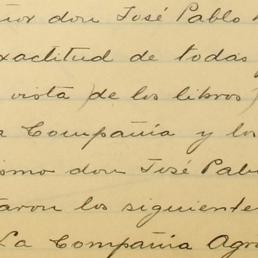 ñor don José Pablo
xactitud de todas
vista) de los libros)
a Compañía y los
ismo don José Pabl
taron los siguiente
La Compañía Agr